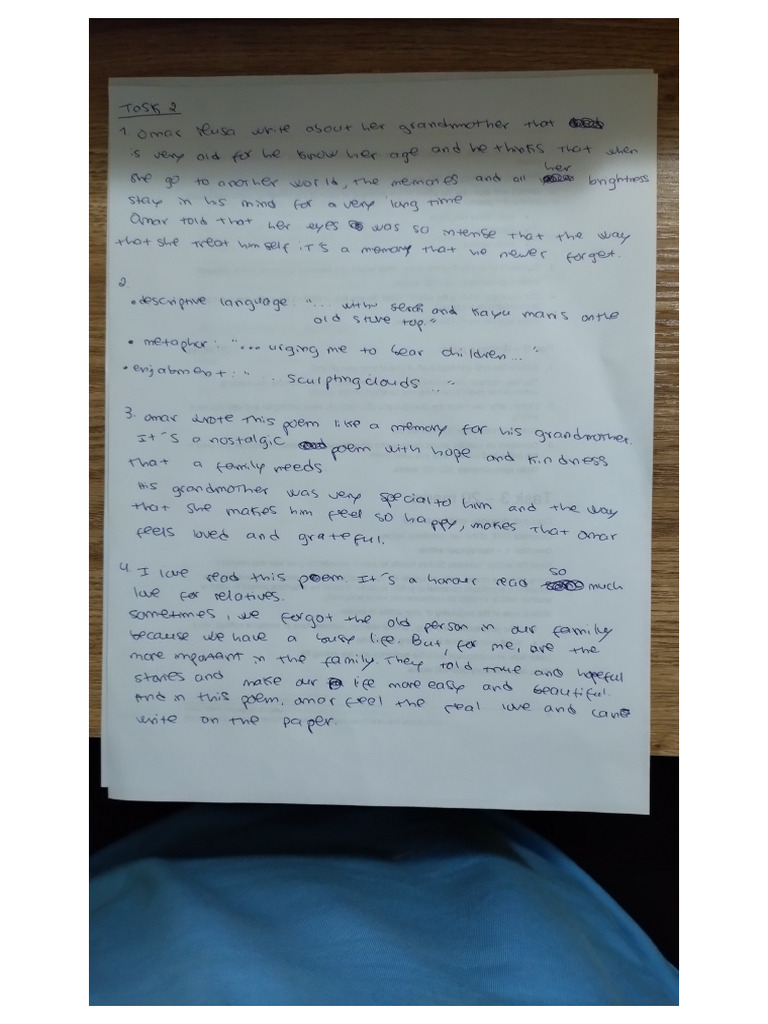 Task 2
1. Omar Musa write about her grandmother that
is very old for he know her age and he thinks that when
she go to another world, the memories and all her brightness
stay in his mind for a very long time
Omar told that her eyes was so intense that the way
that she treat himself it's a memory that he never forget.
2.
• descriptive language: "... with sereh and kayu manis on the
old stove top."
• metaphor: "... urging me to bear children..."
• enjabment: "... sculpting clouds ..."
3. Omar wrote this poem like a memory for his grandmother.
It's a nostalgic poem with hope and kindness
that a family needs
His grandmother was very special to him and the way
that she makes him feel so happy, makes that Omar
feels loved and grateful.
4. I love read this poem. It's a honour read so much
love for relatives.
sometimes, we forgot the old person in our family
because we have a busy life. But, for me, are the
more important in the family. They told true and hopeful
stories and make our life more easy and beautiful.
And in this poem, Omar feel the real love and can
write on the paper.